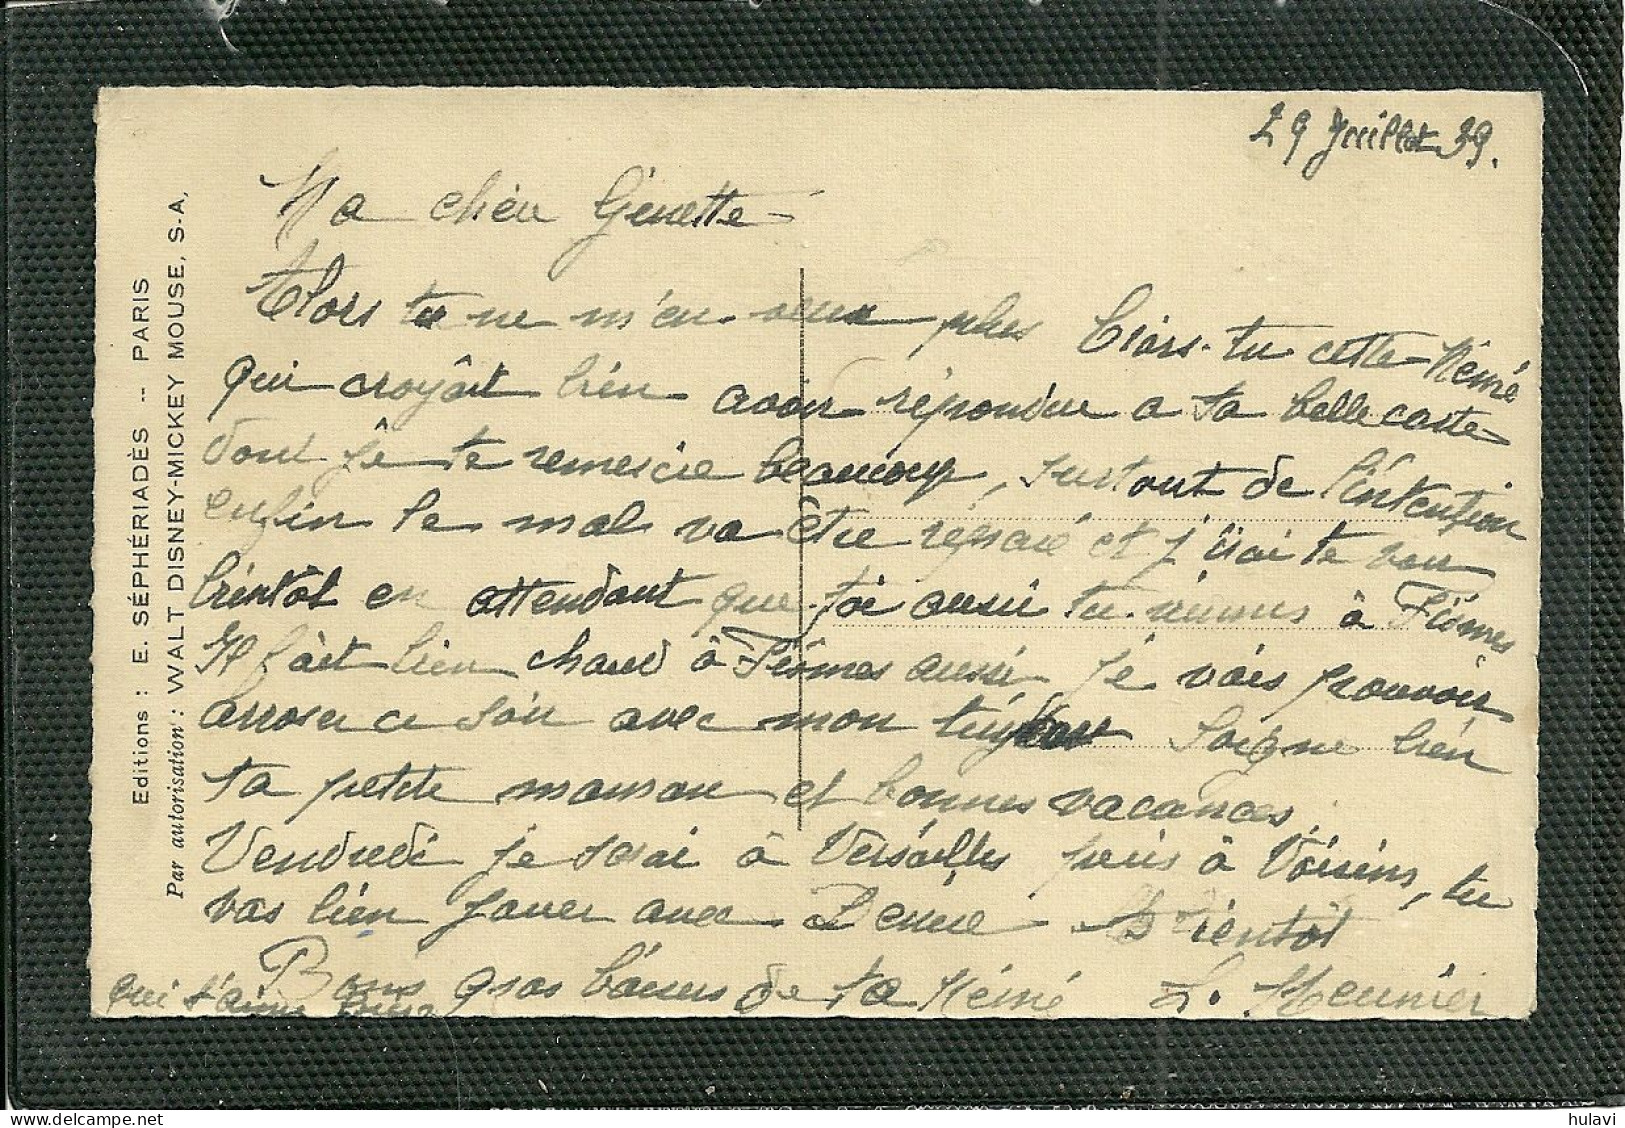 29 Juillet 39.
Ma chère Ginette
Alors tu ne m'en veux plus Crois-tu cette Mémé
qui croyait bien avoir répondue a ta belle carte
dont je te remercie beaucoup, surtout de l'intention
enfin le mal va être réparé et j'irai te voir
bientôt en attendant que toi aussi tu viennes à Fismes
Il fait bien chaud à Fismes aussi je vais pouvoir
arroser ce soir avec mon Soigne bien
ta petite maman et bonnes vacances
Vendredi je serai à Versailles puis à Voisins, tu
vas bien jouer avec Bientôt
Bons gros baisers de ta Mémé L. Meunier
qui t'aime bien
Editions : E. SÉPHÉRIADÈS -- PARIS
Par autorisation : WALT DISNEY-MICKEY MOUSE, S-A,
hulavi